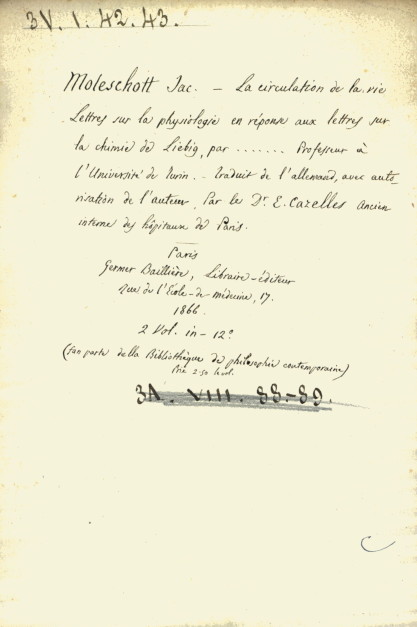 3V. 1. 42. 43.
Moleschott Jac. — La circulation de la vie
Lettres sur la physiologie en réponse aux lettres sur
la chimie de Liebig, par ....... Professeur à
l'Université de Turin. - Traduit de l'allemand, avec auto-
risation de l'auteur, Par le Dr E. Cazelles ancien
interne des hôpitaux de Paris.
Paris
Germer Baillière, Libraire-éditeur
rue de l'École-de médecine, 17.
1866.
2 Vol. in-12°
(fan parte della Bibliothèque de philosophie contemporaine)
Prix 2.50 le vol.
3A. VIII. 88.-89.